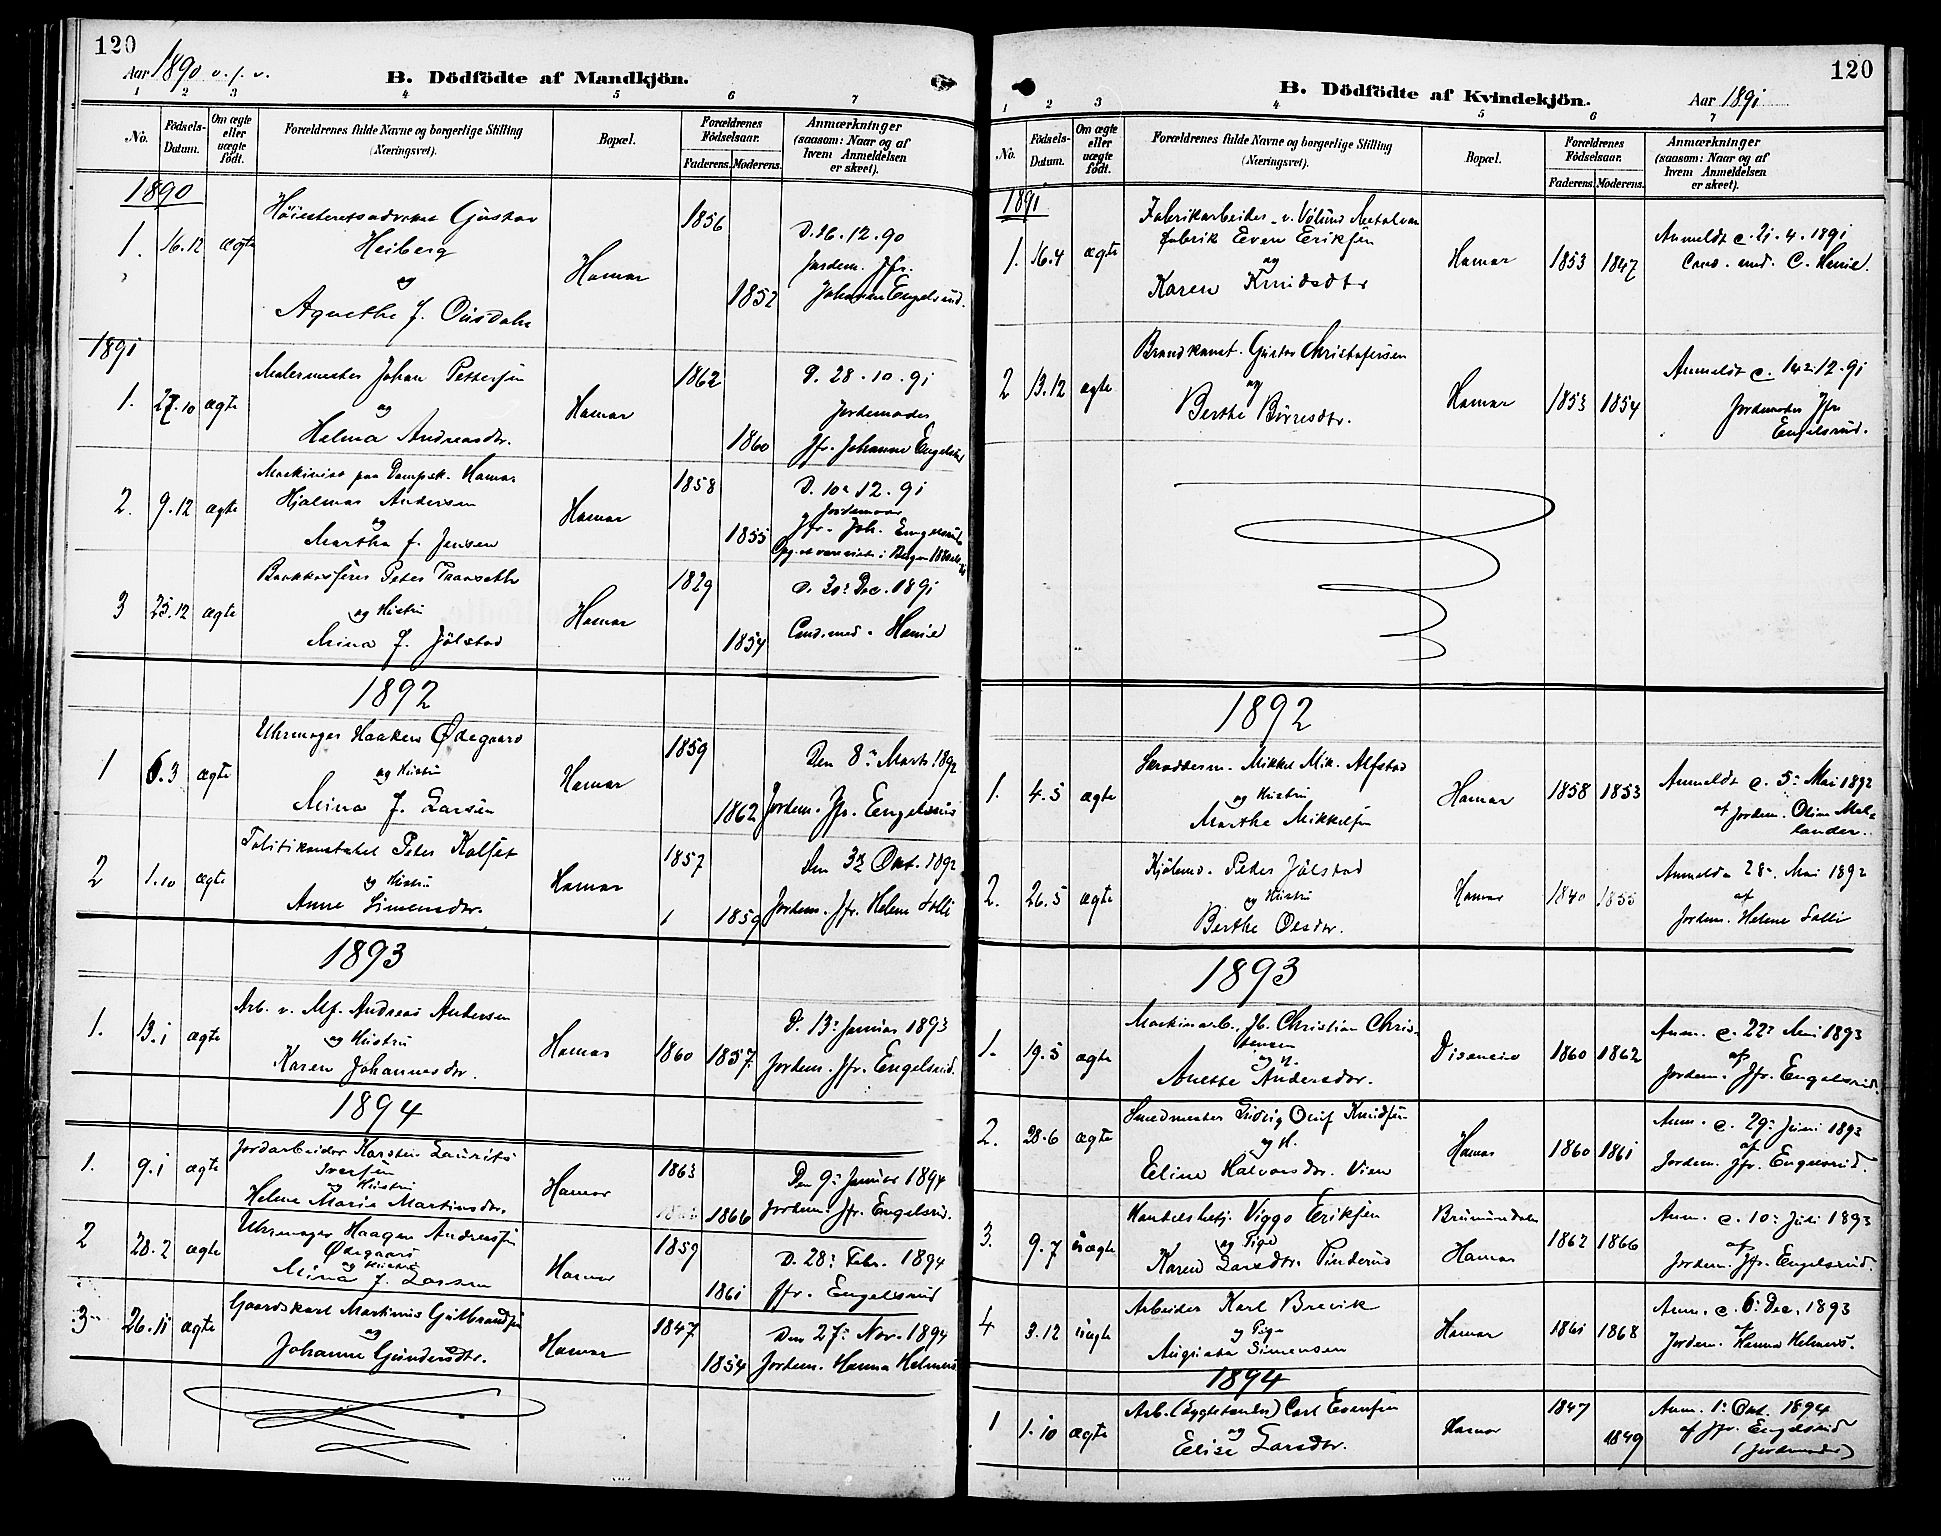 120
Aar 1890 o. f. v.
B. Dödfödte af Mandkjön.
1 2 3 4 5 6 7
No.
Födsels-Datum.
Om ægte eller uægte födt.
Forældrenes fulde Navne og borgerlige Stilling (Næringsvei).
Bopæl.
Forældrenes Födselsaar.
Faderens. Moderens.
Anmærkninger (saasom: Naar og af hvem Anmeldelsen er skeet).
1890
1. 16.12 ægte
Höiesteretsadvokat Gustav
Heiberg
og
Agnethe f.
Hamar
1856
1852
D. 16.12.90
Jordem. Jfr.
Johanne Engelsrud.
1891
1. 27.10 ægte
Malermester Johan Pettersen
og
Helma Andreasdtr.
Hamar
1862
1860
D. 28.10.91
Jordemoder
Jfr. Johanne Engelsrud
2. 9.12 ægte
Maskinist paa Dampsk. Hamar
Hjalmar Andersen
og
Martha f. Jensen
Hamar
1858
1855
D. 10: 12.91
Jordemoder
Jfr. Joh. Engelsrud
3 25.12 ægte
Bankkasserer Peter
og Hustru
Mina f. Jölstad
Hamar
1829
1854
D. 30: Dec. 1891
Cand. med. Henie
1892
1 6.3 ægte
Uhrmager Haaken Ødegaard
og Hustru
Mina f. Larsen
Hamar
1859
1862
Den 8: Marts 1892
Jordem. Jfr. Engelsrud
2 1.10 ægte
Politikonstabel Peter Kolset
og Hustru
Anne Simensdtr.
Hamar
1857
1859
Den 3: Okt. 1892
Jordem. Jfr. Helene Lolli
1893
1. 13.1 ægte
Arb. v. Mf. Andreas Andersen
og Hustru
Karen Johannesdtr.
Hamar
1860 1857.
D. 13: Januar 1893
Jordem. Jfr. Engelsrud.
1894
1. 9.1 ægte
Jordarbeider Karsten Laurits
Iversen
og Hustru
Helene Marie Martinsdtr.
Hamar
1863
1866
Den 9: Januar 1894
Jordem. Jfr. Engelsrud.
2 28.2 ægte
Uhrmager Haagen Andreasen
Ødegaard
og Hustru
Mina f. Larsen
Hamar
1859
1861
D. 28: Febr. 1894
Jfr. Engelsrud
3 26.11 ægte
Gaardskarl Martinus Gulbrandsen
og
Johanne Gundersdtr.
Hamar
1847
1854
Den 27: Nov. 1894
Jordem. Hanna Helmers
120
B. Dödfödte af Kvindekjön.
Aar 1891
1 2 3 4 5 6 7
No.
Födsels-Datum.
Om ægte eller uægte födt.
Forældrenes fulde Navne og borgerlige Stilling (Næringsvei).
Bopæl.
Forældrenes Födselsaar.
Faderens. Moderens.
Anmærkninger (saasom: Naar og af hvem Anmeldelsen er skeet).
1891
1. 16.4 ægte
Fabrikarbeider v. Vølund Metalvar
fabrik Even Eriksen
og
Karen Knudsdtr
Hamar
1853 1847
Anmeldt d. 21.4.1891
Cand. med. C. Henie.
2 13.12 ægte
Brandkonst. Gustav Christofersen
og
Berthe Börresdtr.
Hamar
1853 1854
Anmeldt d. 14: 12.91
Jordemoder Jfr.
Engelsrud.
1892
1. 4.5 ægte
Skrædderm. Mikkel Mik. Alfstad
og Hustru
Marthe Mikkelsen
Hamar
1858 1853
Anmeldt d. 5: Mai 1892
af Jordem. Oline Mel-
lander.
2. 26.5 ægte
Kjöbmd. Peder Jölstad
og Hustru
Berthe Olsdtr.
Hamar
1840 1855
Anmeldt 28: Mai 1892
af
Jordem. Helene Lolli
1893
1. 19.5 ægte
Maskinarb. Jb. Christian Chris-
tensen
og H.
Anette Andersdtr.
Disenein
1860 1862
Anm. d. 22: Mai 1893
af
Jordem. Jfr. Engelsrud.
2. 28.6 ægte
Smedmester Ludvig Oluf Knudsen
og H.
Eline Halvorsdtr. Vien
Hamar
1860 1861
Anm. d. 29: Juni 1893
af
Jordem. Jfr. Engelsrud.
3. 9.7 uægte
Handelsbetj. Viggo Eriksen
og Pige
Karen Larsdtr. Pinderud
Brumundalen
Hamar
1862 1866
Anm. d. 10: Juli 1893
af
Jordem. Jfr. Engelsrud.
4 3.12 uægte
Arbeider Karl Brevik
og Pige
Augusta Simensen
Hamar
1861 1868
Anm. d. 6: Dec. 1893
af
Jordem. Hanna Helmers.
1894
1 1.10 ægte
Arb. Carl Evensen
og
Elise Larsdtr.
Hamar
1847
1849
Anm. 1: Okt. 1894
af Jfr. Engelsrud
(Jordemoder)